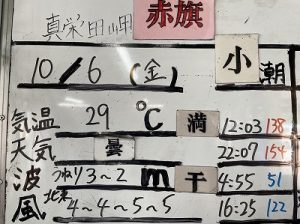 真栄田岬 赤旗
10/6(金) 小潮
気温 29℃ 満 12:03 138
天気 曇 22:07 154
波 うねり3~2m 干 4:55 51
風 北東 4~4~5~5 16:25 122